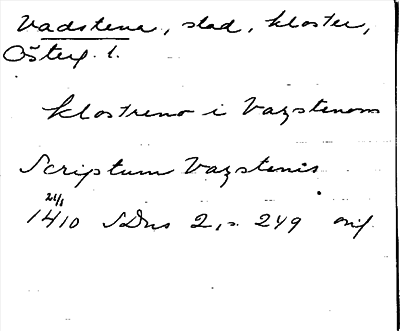 Vadstena, stad, kloster,
Österg. l.
klostreno i Vazstenom
Scriptum Vazstenis
21/1
1410 SDns 2, s. 249 orig.